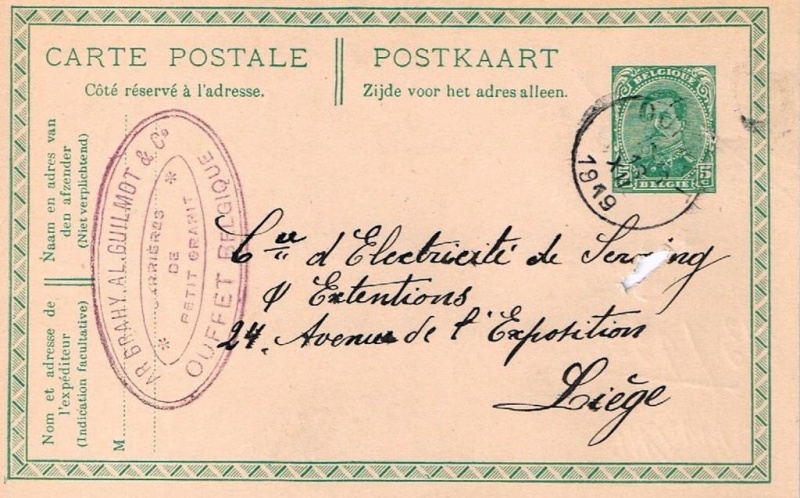 CARTE POSTALE
Côté réservé à l'adresse.
POSTKAART
Zijde voor het adres alleen.
BELGIQUE
5c 5c
BELGIË
1919
Naam en adres van
den afzender
(Niet verplichtend)
Nom et adresse de
l'expéditeur
(Indication facultative)
M
AR BRAHY. AL. GUILMOT & Co
CARRIÈRES
DE
PETIT GRANIT
OUFFET BELGIQUE
Cie d'Electricité de Seraing
& Extentions
24, Avenue de l'Exposition
Liège